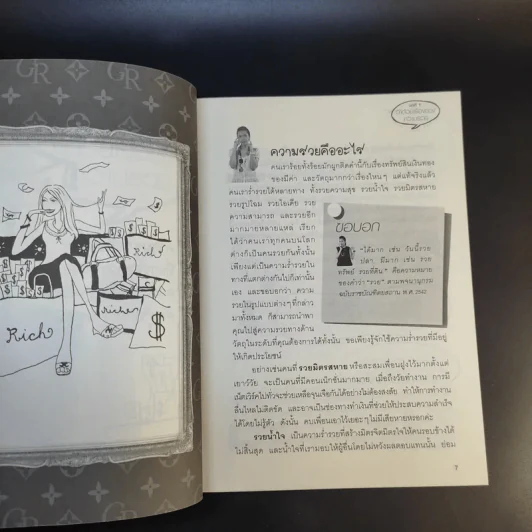 GR
GR
Rich
Rich
Richer
$
ความรวยคืออะไร
คนเราร้อยทั้งร้อยมักผูกติดคำนี้กับเรื่องทรัพย์สินเงินทอง
ของมีค่า และวัตถุมากกว่าเรื่องไหนๆ แต่แท้จริงแล้ว
คนเราร่ำรวยได้หลายทาง ทั้งรวยความสุข รวยน้ำใจ รวยมิตรสหาย
รวยรูปโฉม รวยไอเดีย รวย
ความสามารถ และรวยอีก
มากมายหลายแหล่ เรียก
ได้ว่าคนเราทุกคนบนโลก
ต่างก็เป็นคนรวยกันทั้งนั้น
เพียงแต่เป็นความร่ำรวยใน
ทางที่แตกต่างกันไปก็เท่านั้น
เอง และขอบอกว่า ความ
รวยในรูปแบบต่างๆ ที่กล่าว
มาทั้งหมด ก็สามารถนำพา
คุณไปสู่ความรวยทางด้าน
วัตถุในระดับที่คุณต้องการได้ทั้งนั้น ขอเพียงรู้จักใช้ความร่ำรวยที่มีอยู่
ให้เกิดประโยชน์
ขอบอก
"ได้มาก เช่น วันนี้รวย
ปลา, มีมาก เช่น รวย
ทรัพย์ รวยที่ดิน" คือความหมาย
ของคำว่า "รวย" ตามพจนานุกรม
ฉบับราชบัณฑิตยสถาน พ.ศ. 2542
อย่างเช่นคนที่ รวยมิตรสหาย หรือสะสมเพื่อนฝูงไว้มากตั้งแต่
เยาว์วัย จะเป็นคนที่มีคอนเน็กชั่นมากมาย เมื่อถึงวัยทำงาน การมี
เน็ตเวิร์คไปทั่วจะช่วยเหลือจุนเจือกันได้อย่างไม่ต้องสงสัย ทำให้การทำงาน
ลื่นไหลไม่ติดขัด และอาจเป็นช่องทางทำเงินที่ช่วยให้ประสบความสำเร็จ
ได้โดยไม่รู้ตัว ดังนั้น คบเพื่อนเอาไว้เยอะๆ ไม่มีเสียหายหรอกค่ะ
รวยน้ำใจ เป็นความร่ำรวยที่สร้างมิตรจิตมิตรใจให้คนรอบข้างได้
ไม่สิ้นสุด และน้ำใจที่เรามอบให้ผู้อื่นโดยไม่หวังผลตอบแทนนั้น ย่อม
7